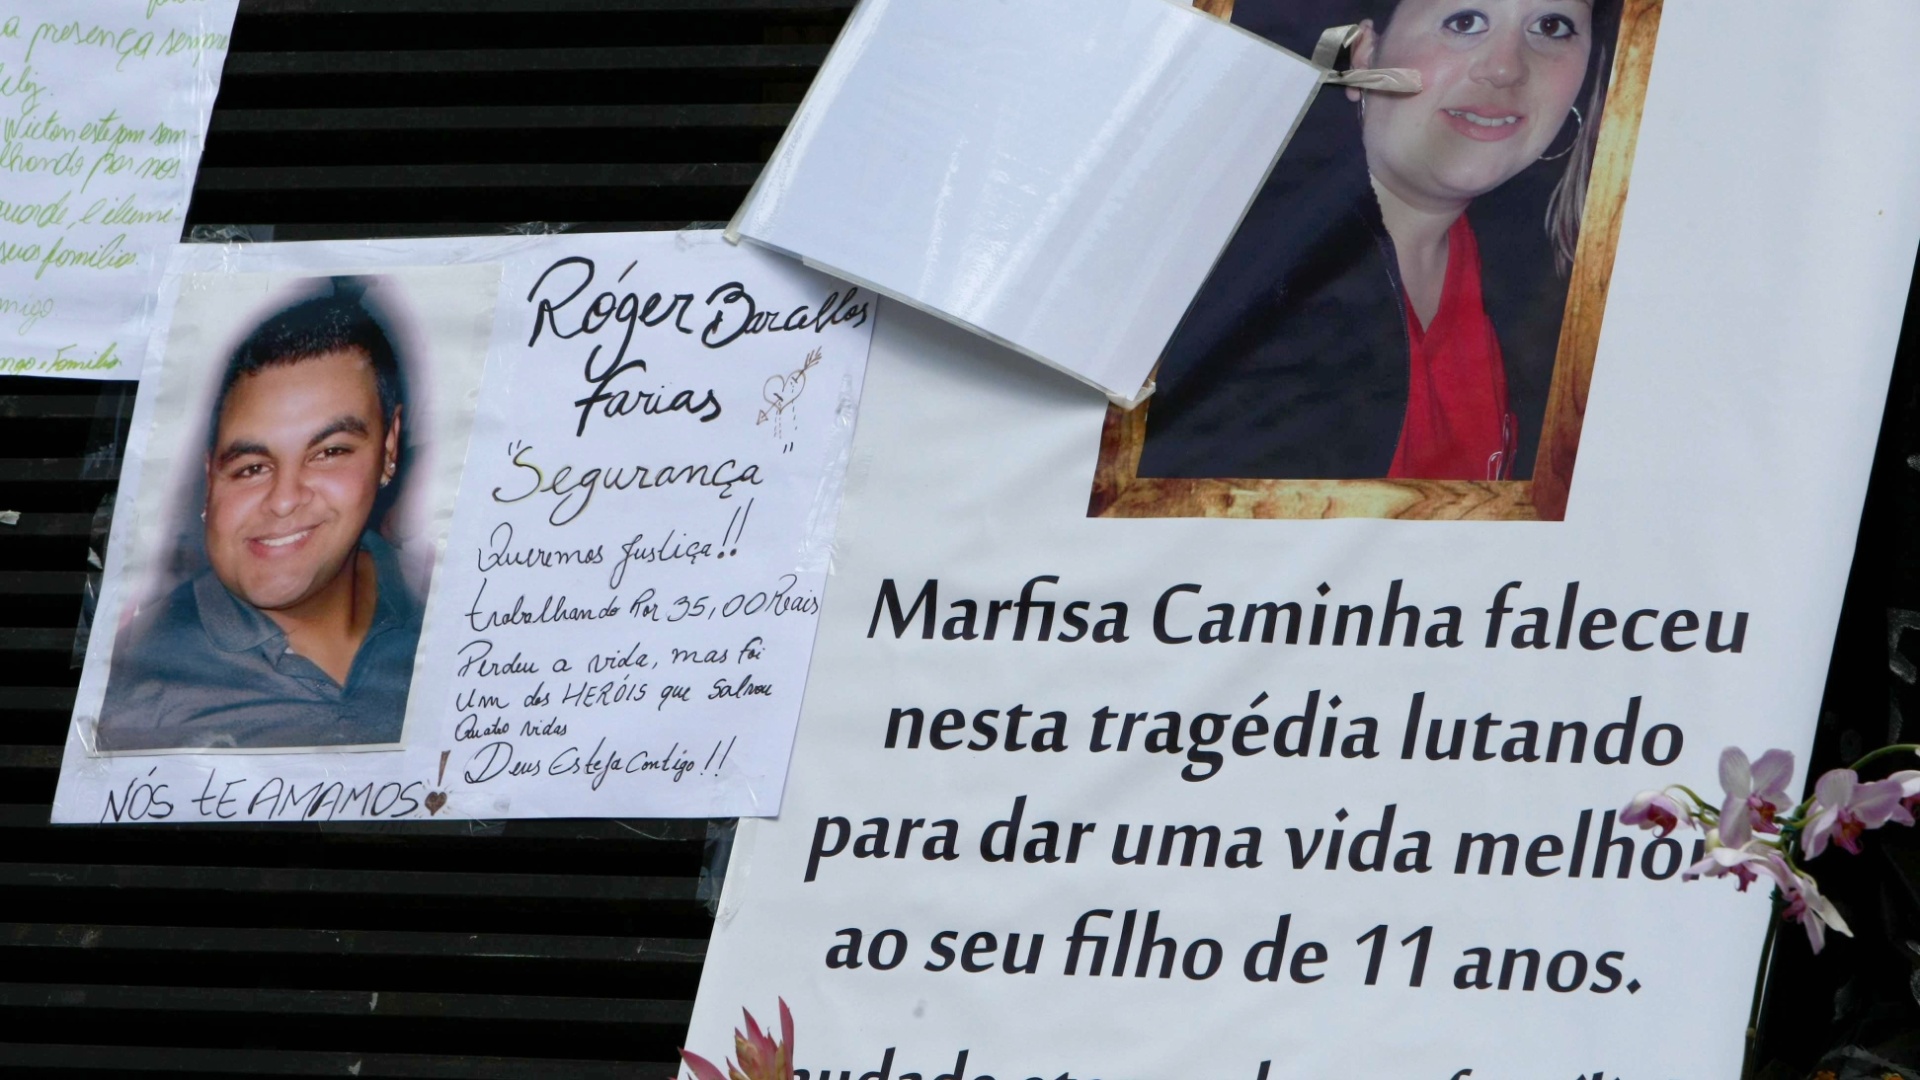 a presença sempre
feliz.
guarde, e ilumi-
seus familia.
Róger Barcellos
Farias
"Segurança"
Queremos Justiça!!
trabalhando Por 35,00 Reais
Perdeu a vida, mas foi
um dos HERÓIS que Salvou
Quatro vidas
Deus Esteja Contigo!!
NÓS tE AMAMOS!
Marfisa Caminha faleceu
nesta tragédia lutando
para dar uma vida melhor
ao seu filho de 11 anos.